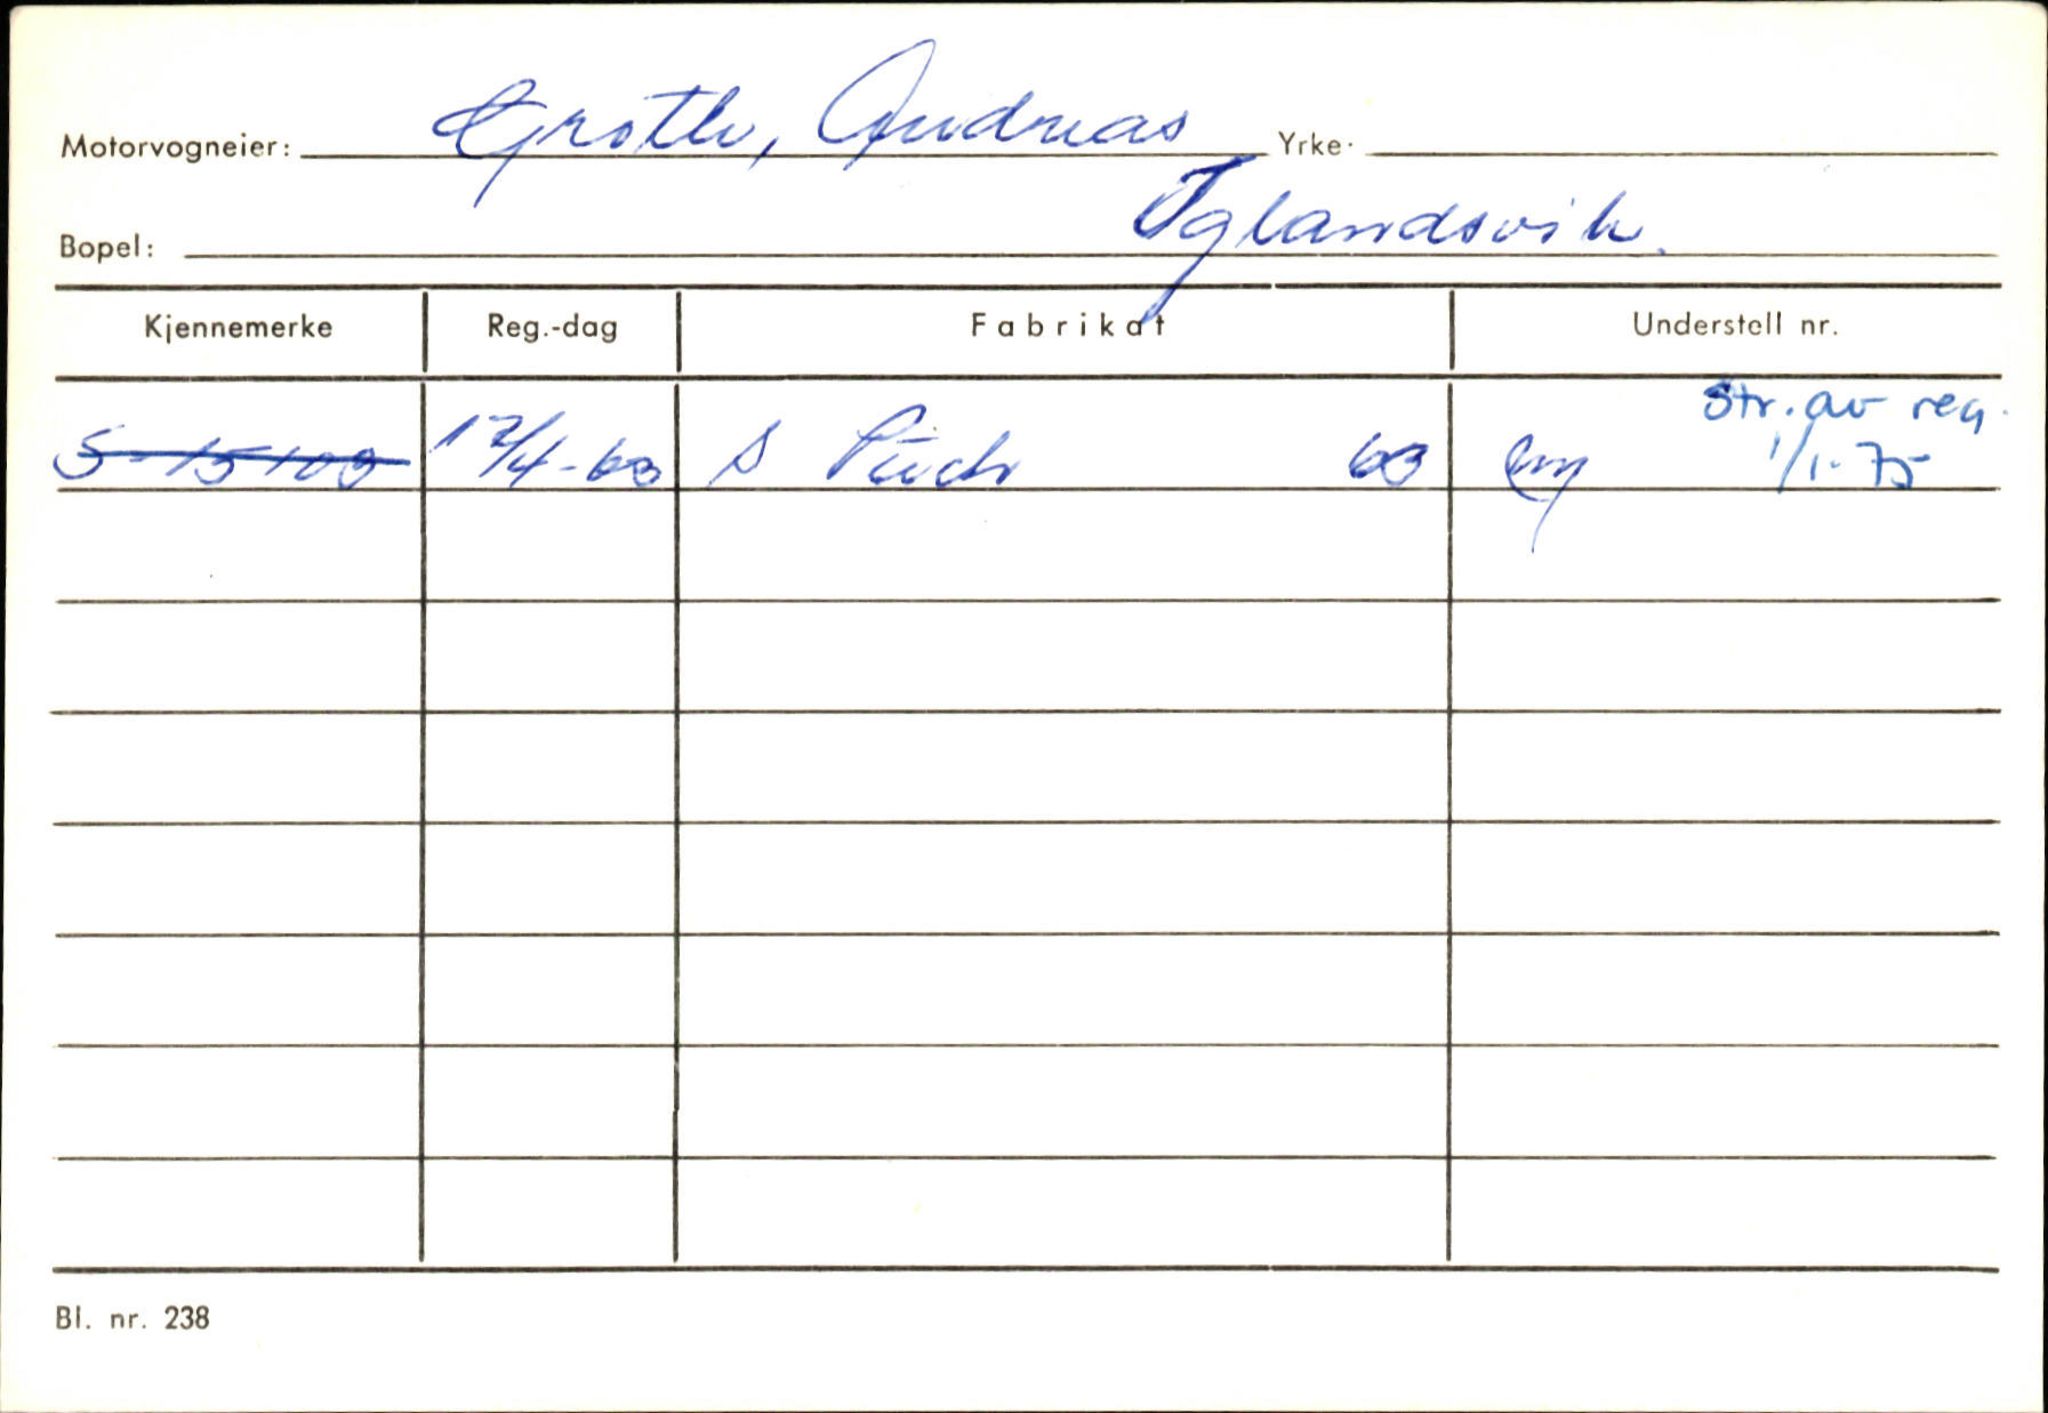 Motorvogneier: Grotle, Andreas Yrke:
Bopel: Iglandsvik.
Kjennemerke Reg.-dag Fabrikat Understell nr.
S-15103 12/4-63 S Puch 63 Str. av reg.
1/1-75
Bl. nr. 238